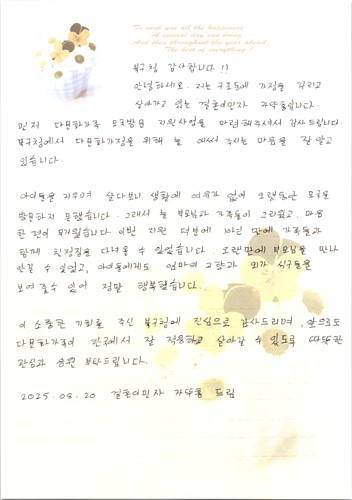 To wish you all the happiness
A special day can bring
And then throughout the year ahead
The best of everything!
북구청 감사합니다!!
안녕하세요. 저는 구포동에 가정을 꾸리고
살아가고 있는 결혼이민자 입니다.
먼저 다문화가족 모국방문 지원사업을 마련해주셔서 감사드립니다.
북구청에서 다문화가정을 위해 늘 애써 주시는 마음을 잘 알고
있습니다.
아이들을 키우며 살다보니 생활에 여유가 없어 오랫동안 모국을
방문하지 못했습니다. 그래서 늘 부모님과 가족들이 그리웠고, 마음
한 편이 무거웠습니다. 이번 지원 덕분에 만에 가족들과
함께 친정집을 다녀올 수 있었습니다. 오랜만에 부모님을 만나
안길 수 있었고, 아이들에게도 엄마의 고향과 외가 식구들을
보여줄수 있어 정말 행복했습니다.
이 소중한 기회를 주신 북구청에 진심으로 감사드리며, 앞으로도
다문화가족이 한국에서 잘 적응하고 살아갈 수 있도록 따뜻한
관심과 응원 부탁드립니다.
2025.08.20 결혼이민자 드림